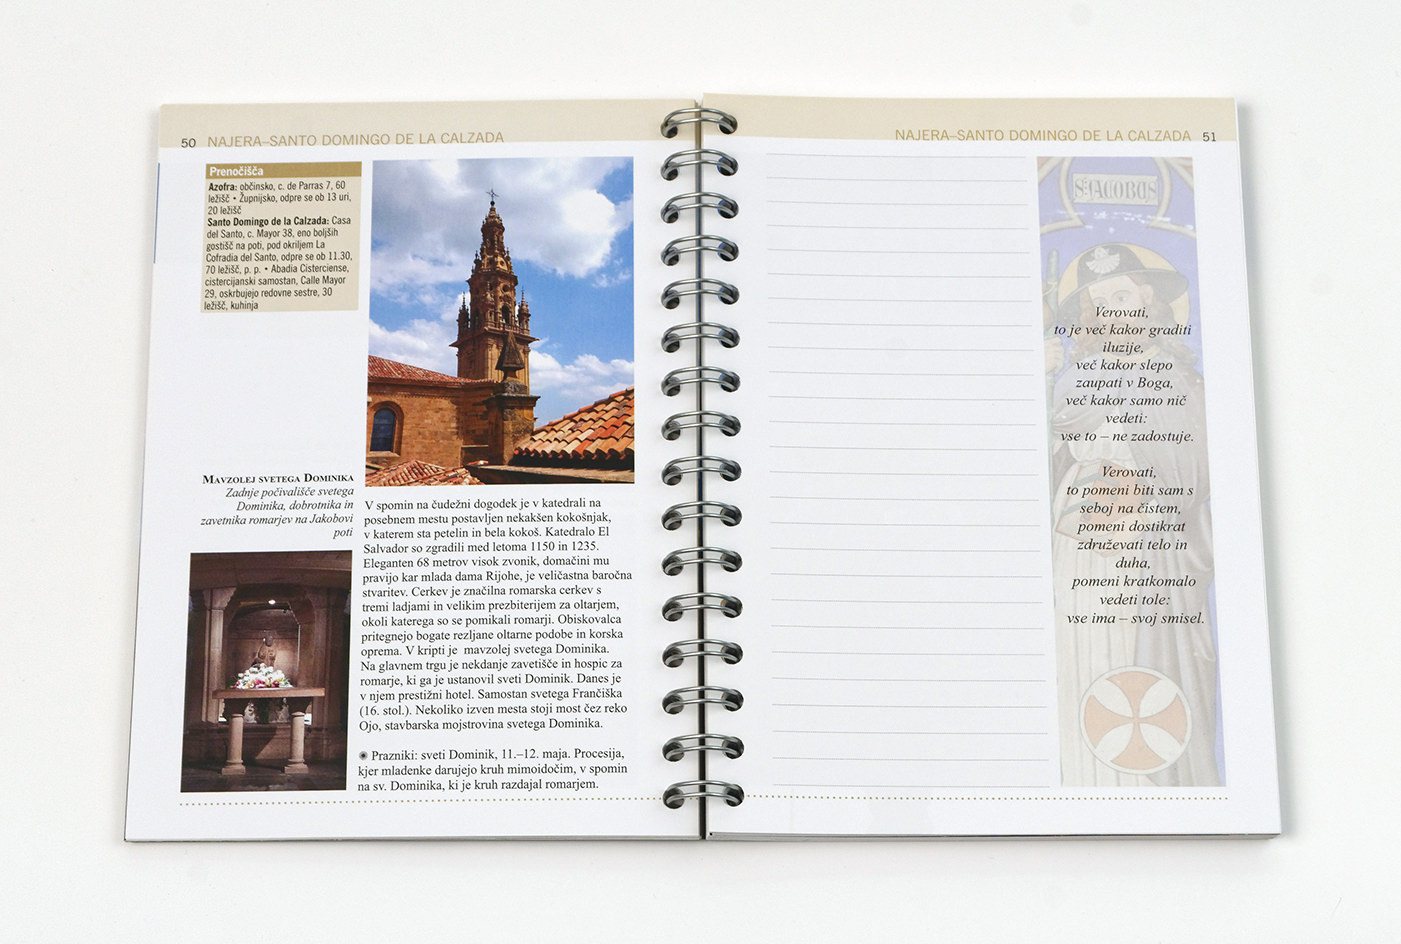 50 NAJERA–SANTO DOMINGO DE LA CALZADA
Prenočišča
Azofra: občinsko, c. de Parras 7, 60
ležišč • Župnijsko, odpre se ob 13 uri,
20 ležišč
Santo Domingo de la Calzada: Casa
del Santo, c. Mayor 38, eno boljših
gostišč na poti, pod okriljem La
Cofradia del Santo, odpre se ob 11.30,
70 ležišč, p. p. • Abadia Cisterciense,
cistercijanski samostan, Calle Mayor
29, oskrbujejo redovne sestre, 30
ležišč, kuhinja
Mavzolej svetega Dominika
Zadnje počivališče svetega
Dominika, dobrotnika in
zavetnika romarjev na Jakobovi
poti
V spomin na čudežni dogodek je v katedrali na
posebnem mestu postavljen nekakšen kokošnjak,
v katerem sta petelin in bela kokoš. Katedralo El
Salvador so zgradili med letoma 1150 in 1235.
Eleganten 68 metrov visok zvonik, domačini mu
pravijo kar mlada dama Rijohe, je veličastna baročna
stvaritev. Cerkev je značilna romarska cerkev s
tremi ladjami in velikim prezbiterijem za oltarjem,
okoli katerega so se pomikali romarji. Obiskovalca
pritegnejo bogate rezljane oltarne podobe in korska
oprema. V kripti je mavzolej svetega Dominika.
Na glavnem trgu je nekdanje zavetišče in hospic za
romarje, ki ga je ustanovil sveti Dominik. Danes je
v njem prestižni hotel. Samostan svetega Frančiška
(16. stol.). Nekoliko izven mesta stoji most čez reko
Ojo, stavbarska mojstrovina svetega Dominika.
Prazniki: sveti Dominik, 11.–12. maja. Procesija,
kjer mladenke darujejo kruh mimoidočim, v spomin
na sv. Dominika, ki je kruh razdajal romarjem.
NAJERA–SANTO DOMINGO DE LA CALZADA 51
S. JACOBUS
Verovati,
to je več kakor graditi
iluzije,
več kakor slepo
zaupati v Boga,
več kakor samo nič
vedeti:
vse to – ne zadostuje.
Verovati,
to pomeni biti sam s
seboj na čistem,
pomeni dostikrat
združevati telo in
duha,
pomeni kratkomalo
vedeti tole:
vse ima – svoj smisel.